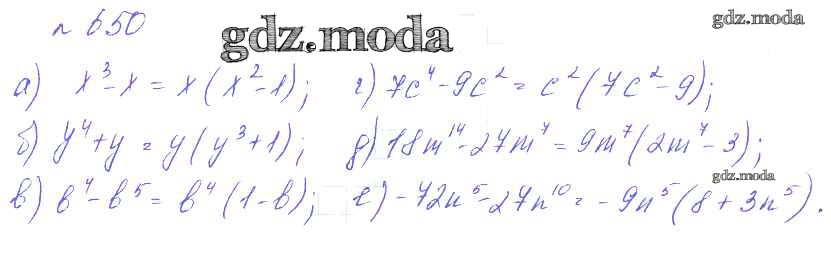 n 650
gdz.moda
gdz.moda
а) x³-x = x(x²-1);
г) 7c⁴-9c² = c²(7c²-9);
б) y⁴+y = y(y³+1);
д) 18m¹⁴-27m⁷ = 9m⁷(2m⁷-3);
gdz.moda
в) b⁴-b⁵ = b⁴(1-b);
е) -72n⁵-27n¹⁰ = -9n⁵(8+3n⁵).